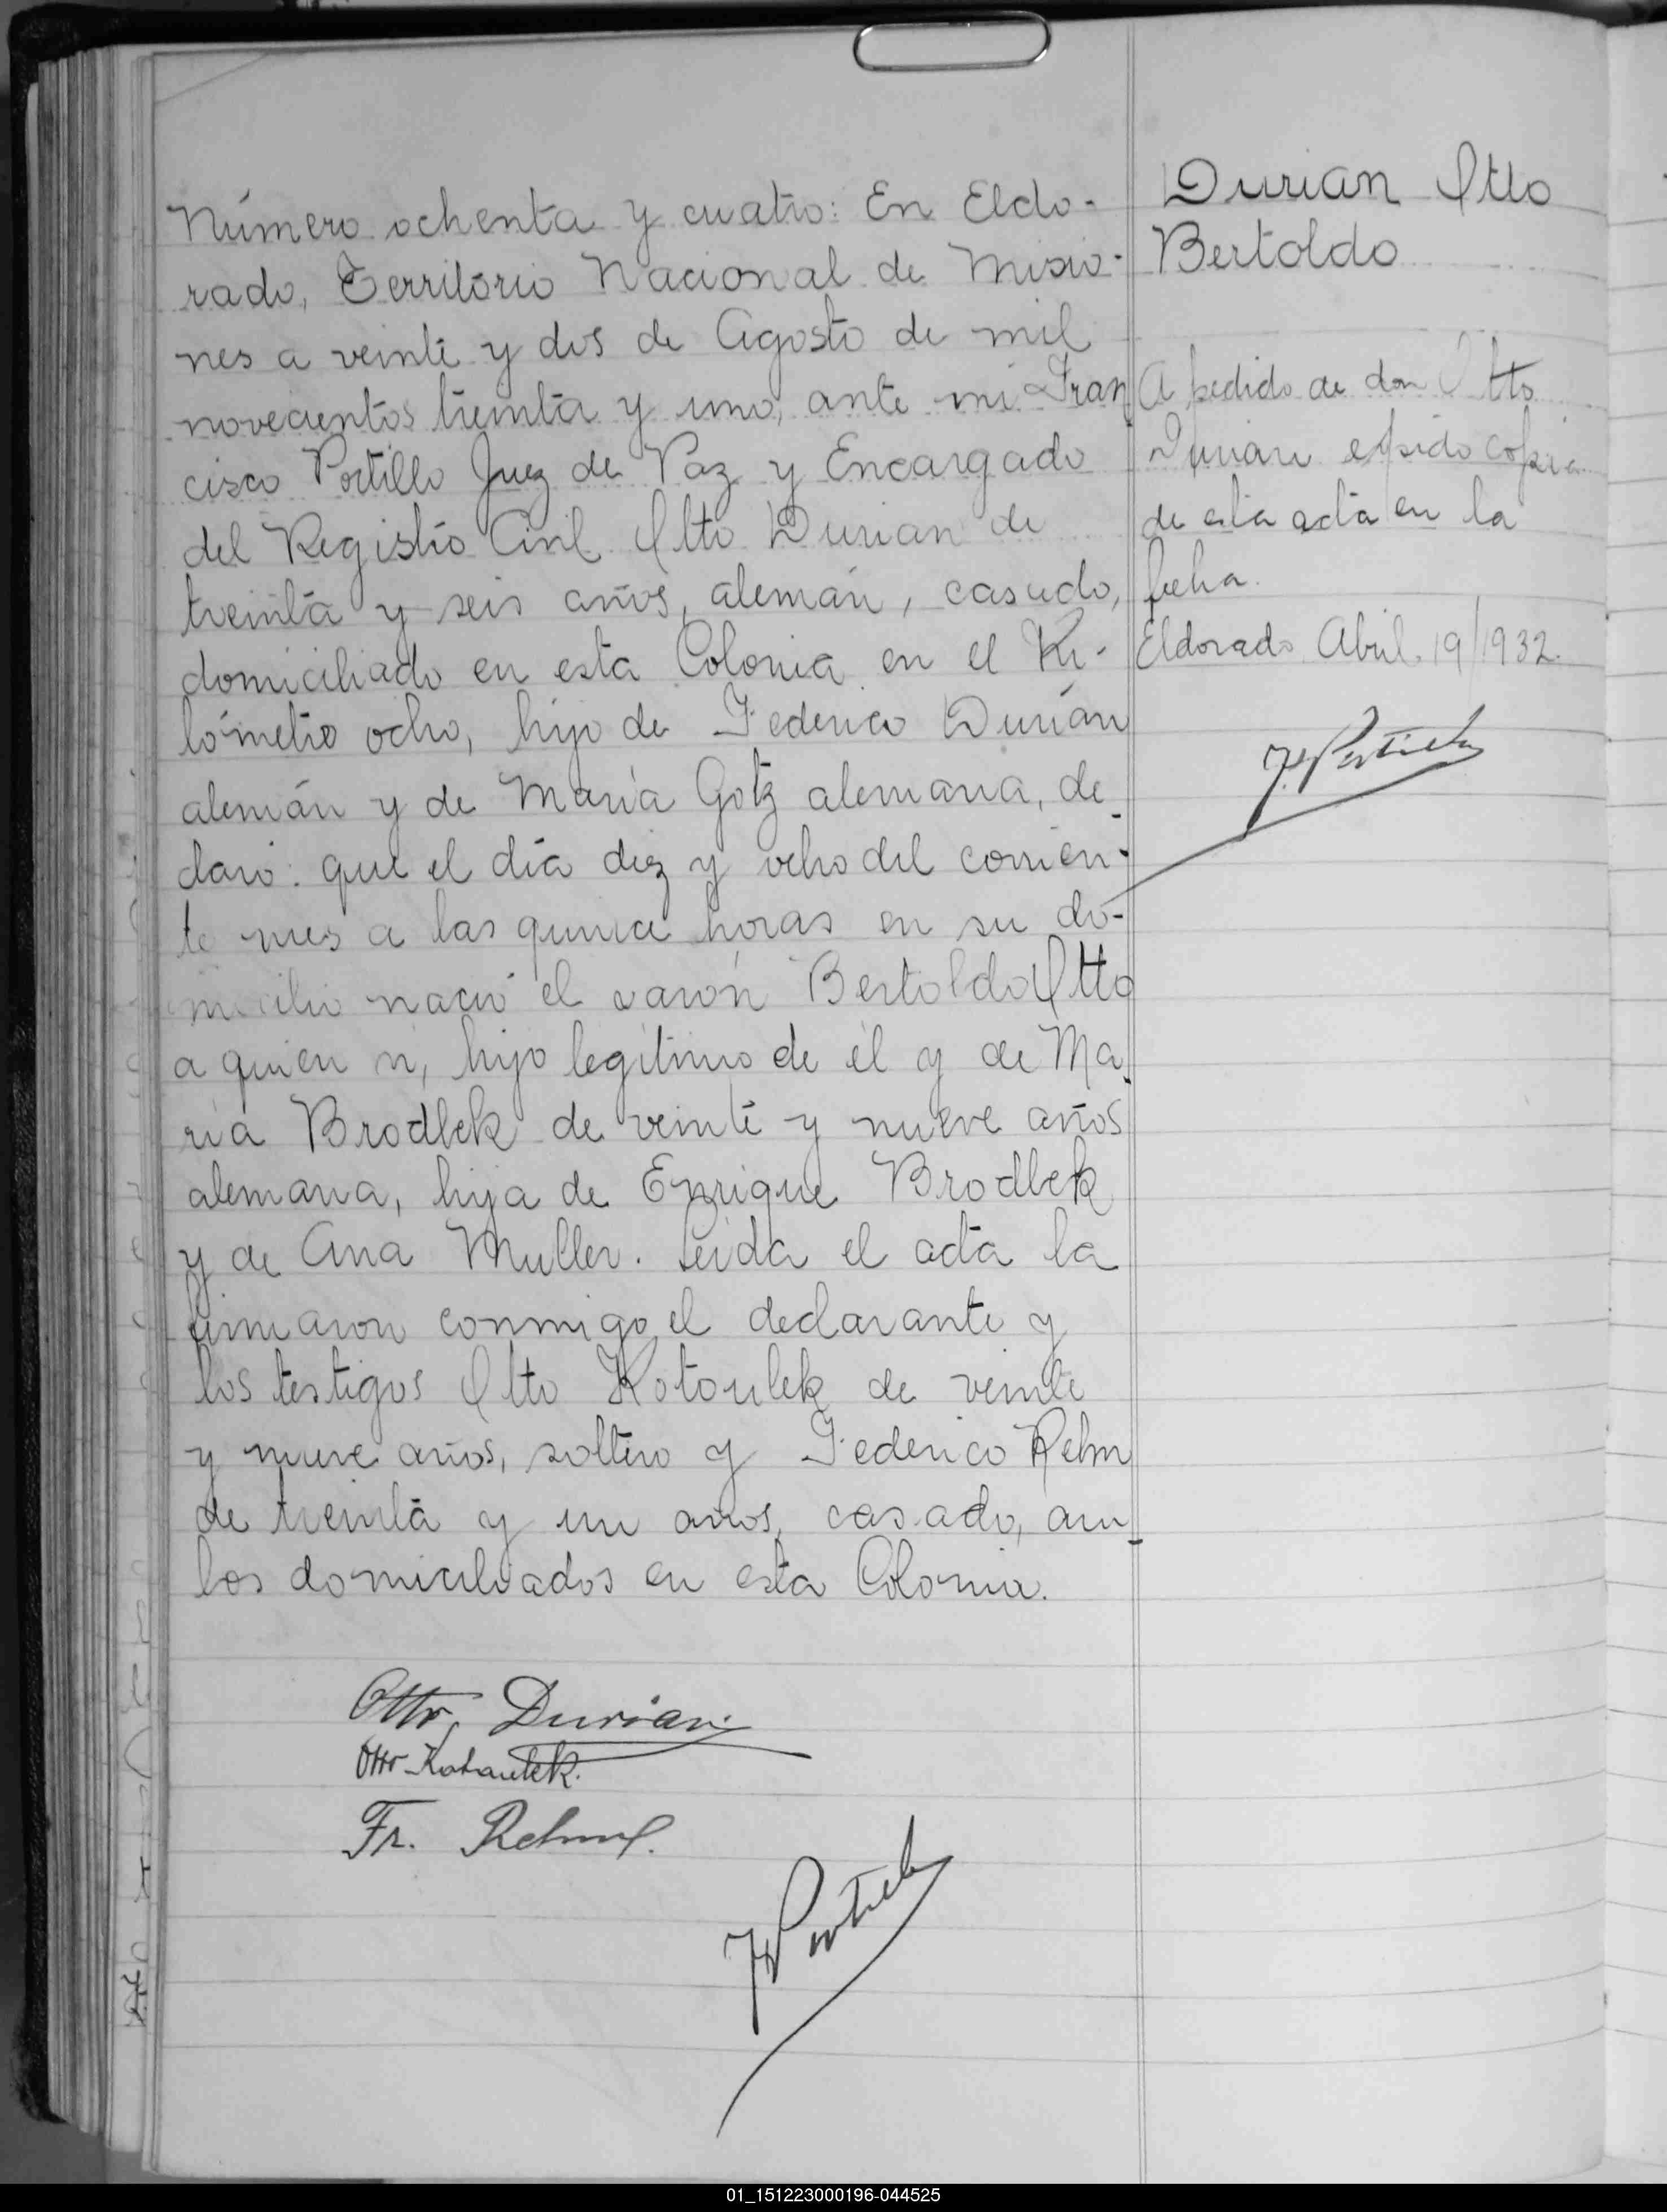 Número ochenta y cuatro: En Eldo-
rado, Territorio Nacional de Misio-
nes a veinte y dos de Agosto de mil
novecientos treinta y uno, ante mi Fran
cisco Portillo Juez de Paz y Encargado
del Registro Civil Otto Durian de
treinta y seis años, alemán, casado,
domiciliado en esta Colonia en el Ki-
lómetro ocho, hijo de Federico Durián
alemán y de María Gotz alemana, de
claró: que el día diez y ocho del corrien-
te mes a las quince horas en su do-
micilio nació el varón Bertoldo Otto
a quien vi, hijo legítimo de él y de Ma
ría Brodbek de veinte y nueve años
alemana, hija de Enrique Brodbek
y de Ana Muller. Leída el acta la
firmaron conmigo el declarante y
los testigos Otto Kotoulek de veinte
y nueve años, soltero y Federico Rehm
de treinta y un años, casado, am
bos domiciliados en esta Colonia.
Otto Durian
Otto Kotoulek.
Fr. Rehm.
F Portillo
Durian Otto
Bertoldo
A pedido de don Otto
Durian expido copia
de esta acta en la
fecha.
Eldorado Abril 19/1932.
F. Portillo
01_151223000196-044525